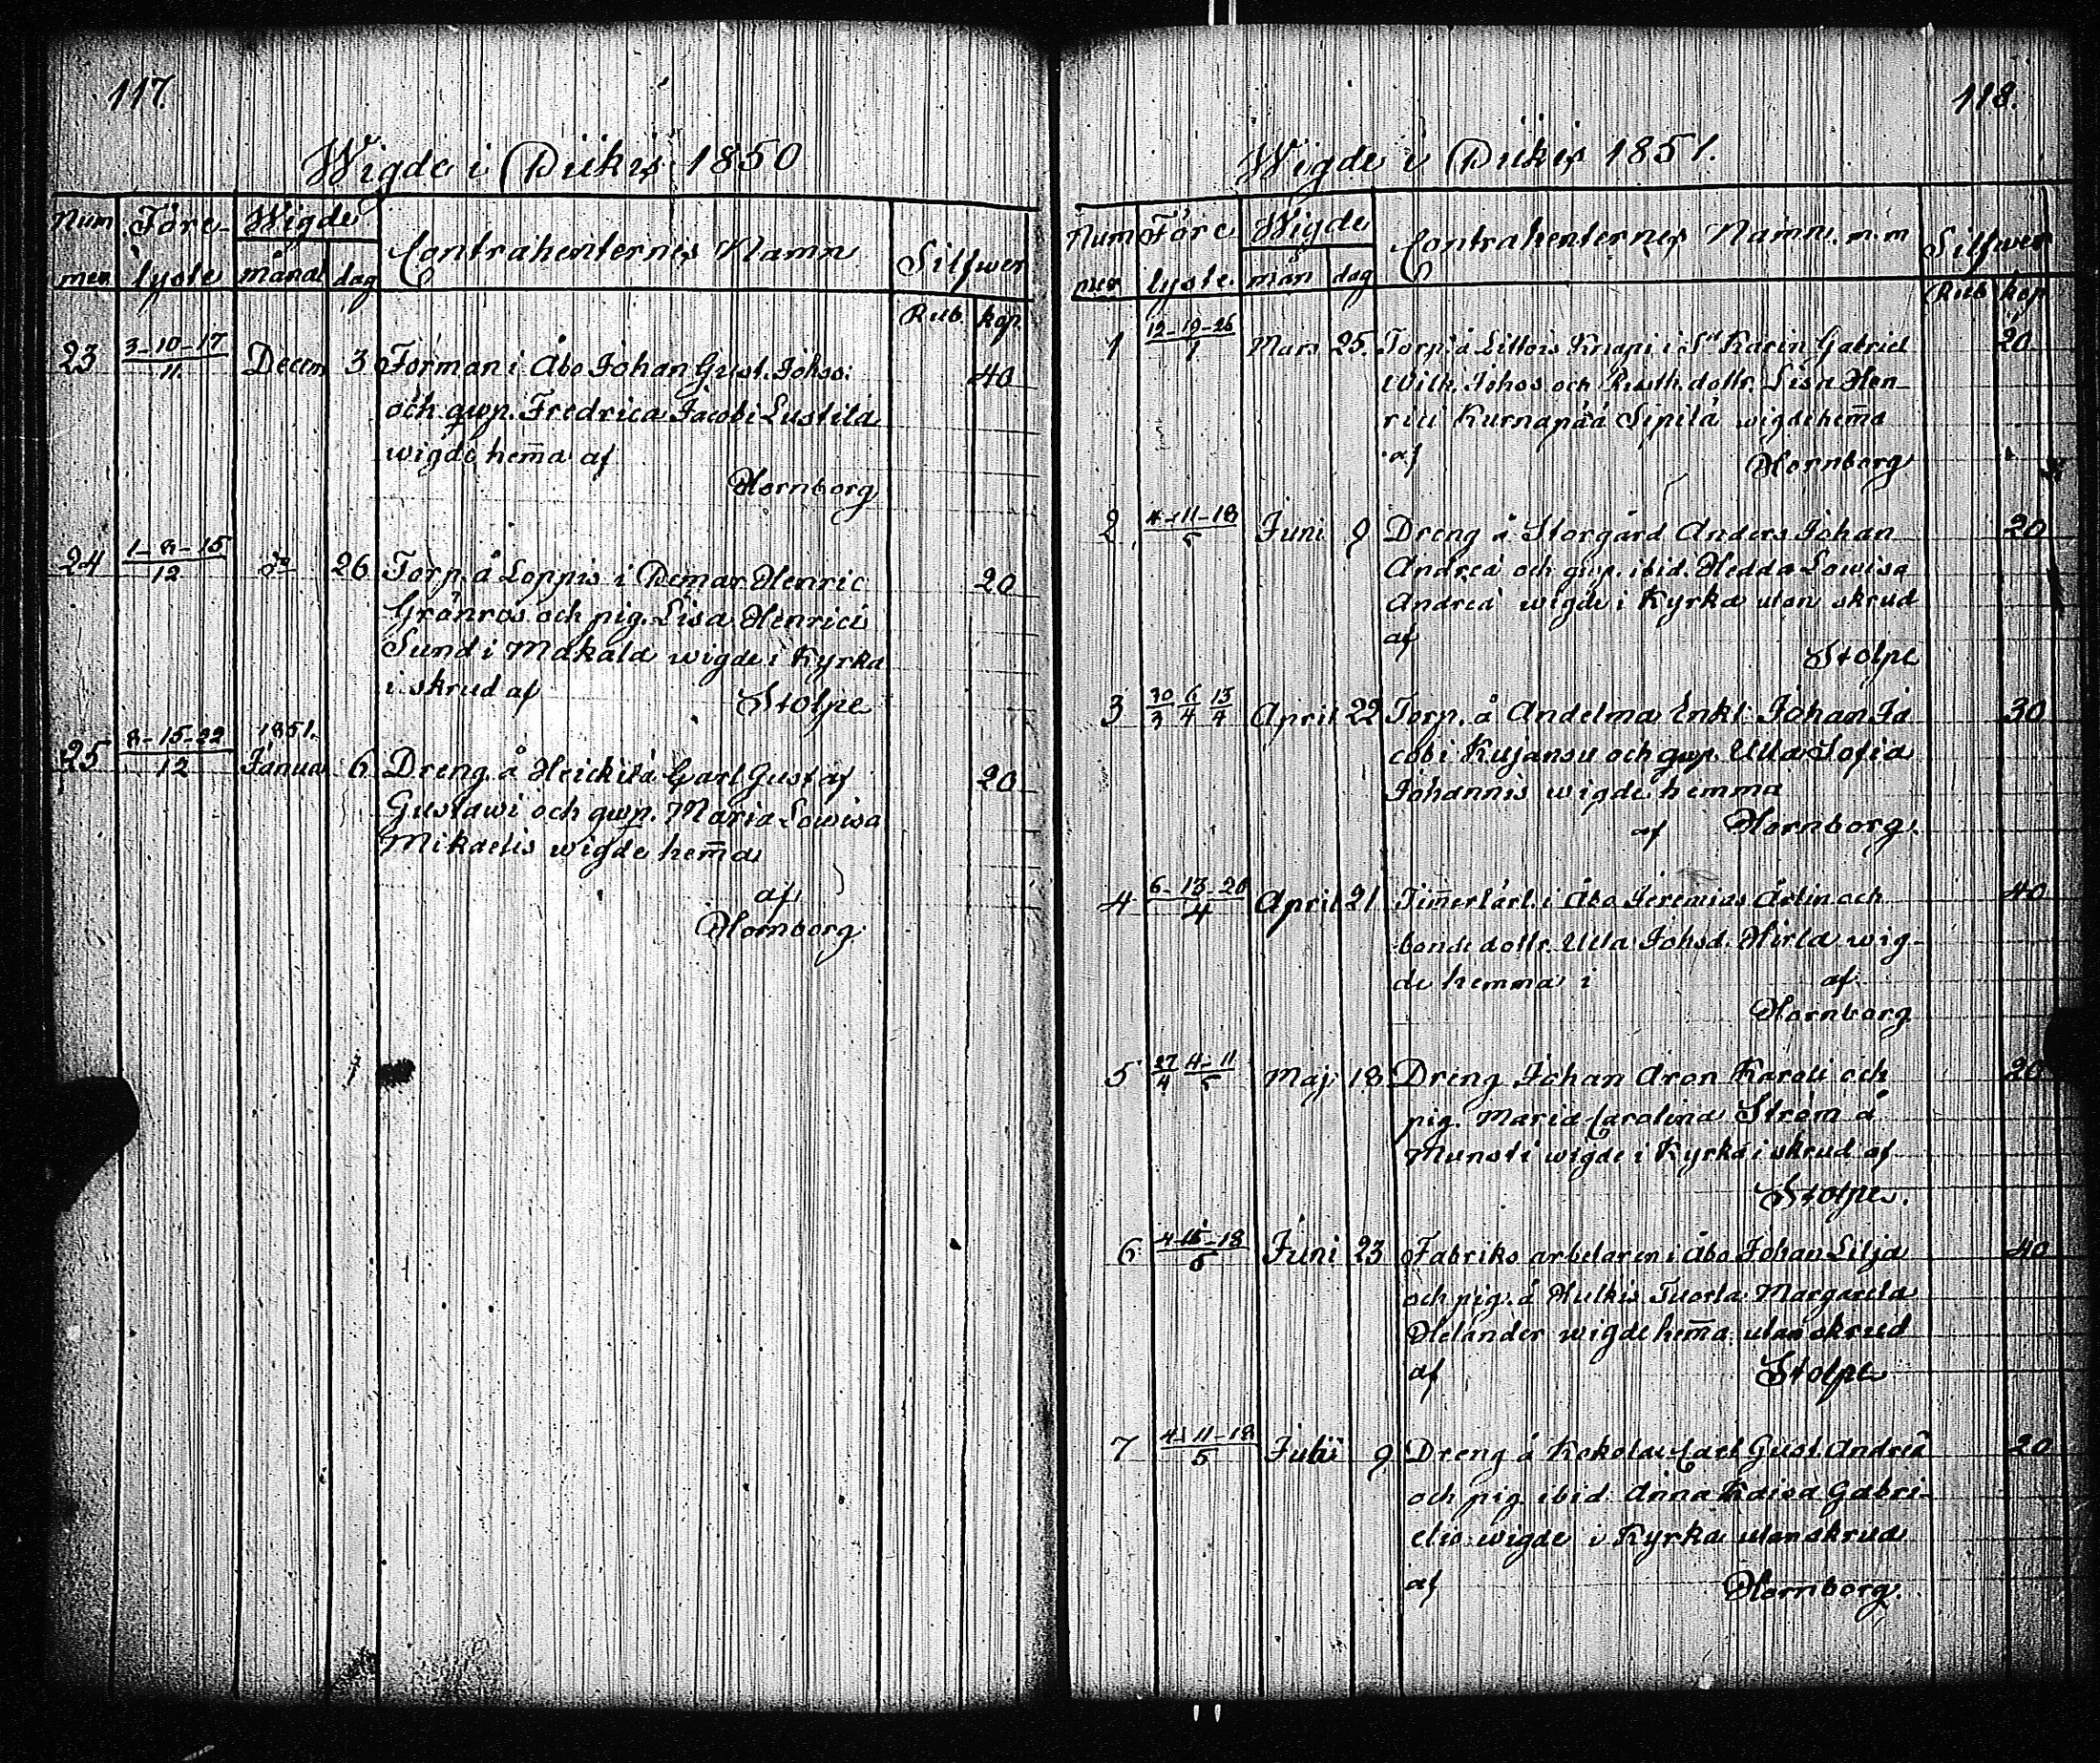 117.
Wigde i Piikis 1850
Num Före- Wigde Contrahenternes Namn Silfwer
mer lyste månad dag Rub. kop.
23 3-10-17/11 Decem 3 Forman i Åbo Johan Gust. Johss: 40
och qwp. Fredrica Jacobi Lustila
wigde hem̅a af
Hornborg
24 1-8-15/12 do 26 Torp. å Loppis i Pemar Henric 20
Grönros och pig. Lisa Henrici
Sund i Makala wigde i Kyrka
i skrud af Stolpe
25 8-15-22/12 1851. Januar 6 Dreng å Heickilä Carl Gustaf 20
Gustawi och qwp. Maria Lowisa
Mikaelis wigde hem̅a
af
Hornborg
118.
Wigde i Piikis 1851.
Num Före Wigde Contrahenternes Namn m.m Silfwer
mer lyste mån dag Rub kop
1 12-19-26/1 Mars 25. Torp. å Littois Knapi i St Karin Gabriel 20
Wilh. Johss och Rusth. dottr. Lisa Hen-
rici Kurnapää Sipilä wigde hem̅a
af Hornborg
2 4-11-18/5 Juni 9 Dreng å Storgård Anders Johan 20
Andreä och qwp. ibid. Hedda Lowisa
Andreä wigde i Kyrka utan skrud
af
Stolpe
3 30/3 6/4 13/4 April 22 Torp. å Andelma Enkl. Johan Ja 30
cobi Kujansu och qwp. Ulla Sofia
Johannis wigde hemma
af Hornborg.
4 6-13-20/4 April 21 Tim̅erlärl. i Åbo Jeremias Arlin och 40
bonde dottr. Ulla Johsd. Hirla wig-
de hemma i af
Hornborg
5 27/4 4-11/5 Maj 18 Dreng Johan Aron Karoli och 20
pig. Maria Carolina Ström å
Munsti wigde i Kyrka i skrud af
Stolpe.
6 4-15-18/5 Juni 23 Fabriks arbetaren i Åbo Johan Lilja 40
och pig. å Hulkis Tuorla Margareta
Helander wigde hem̅a utan skrud
af Stolpe
7 4-11-18/5 Juli 9 Dreng å Kokola Carl Gust. Andreä 20
och pig ibid Anna Kaisa Gabri-
elis wigde i Kyrka utan skrud
af Hornborg.